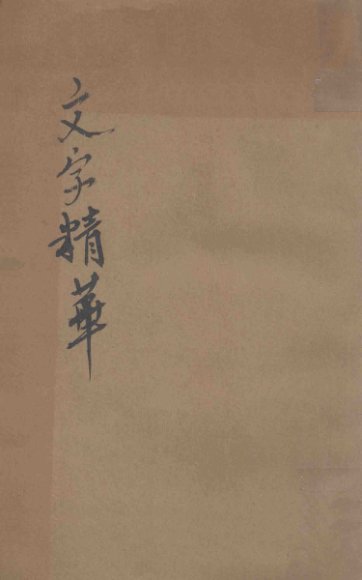 文字精華